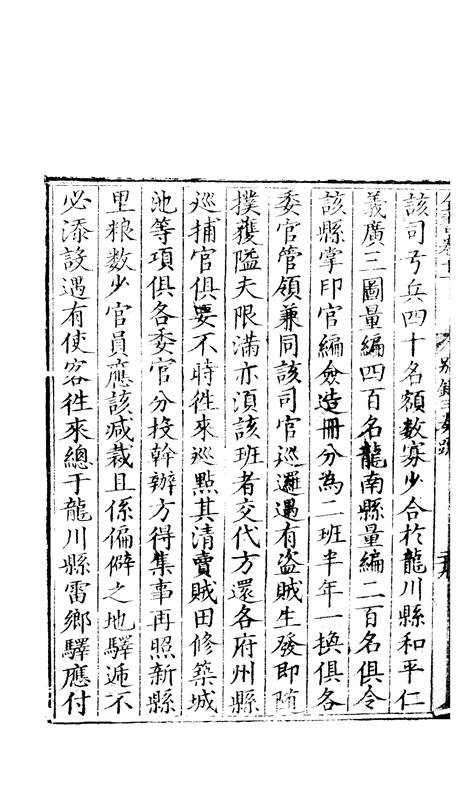 該司弓兵四十名額數寡少合於龍川縣和平仁
義廣三圖量編四百名龍南縣量編二百名俱令
該縣掌印官編僉造冊分為二班半年一換俱各
委官管領兼同該司官巡邏遇有盗賊生發即随
撲獲隘夫限滿亦湏該班者交代方還各府州縣
巡捕官俱要不時徃來巡點其清賣賊田修築城
池等項俱各委官分投幹辦方得集事再照新縣
里粮數少官員應該减裁且係偏僻之地驛逓不
必添設遇有使客徃來總于龍川縣雷鄉驛應付